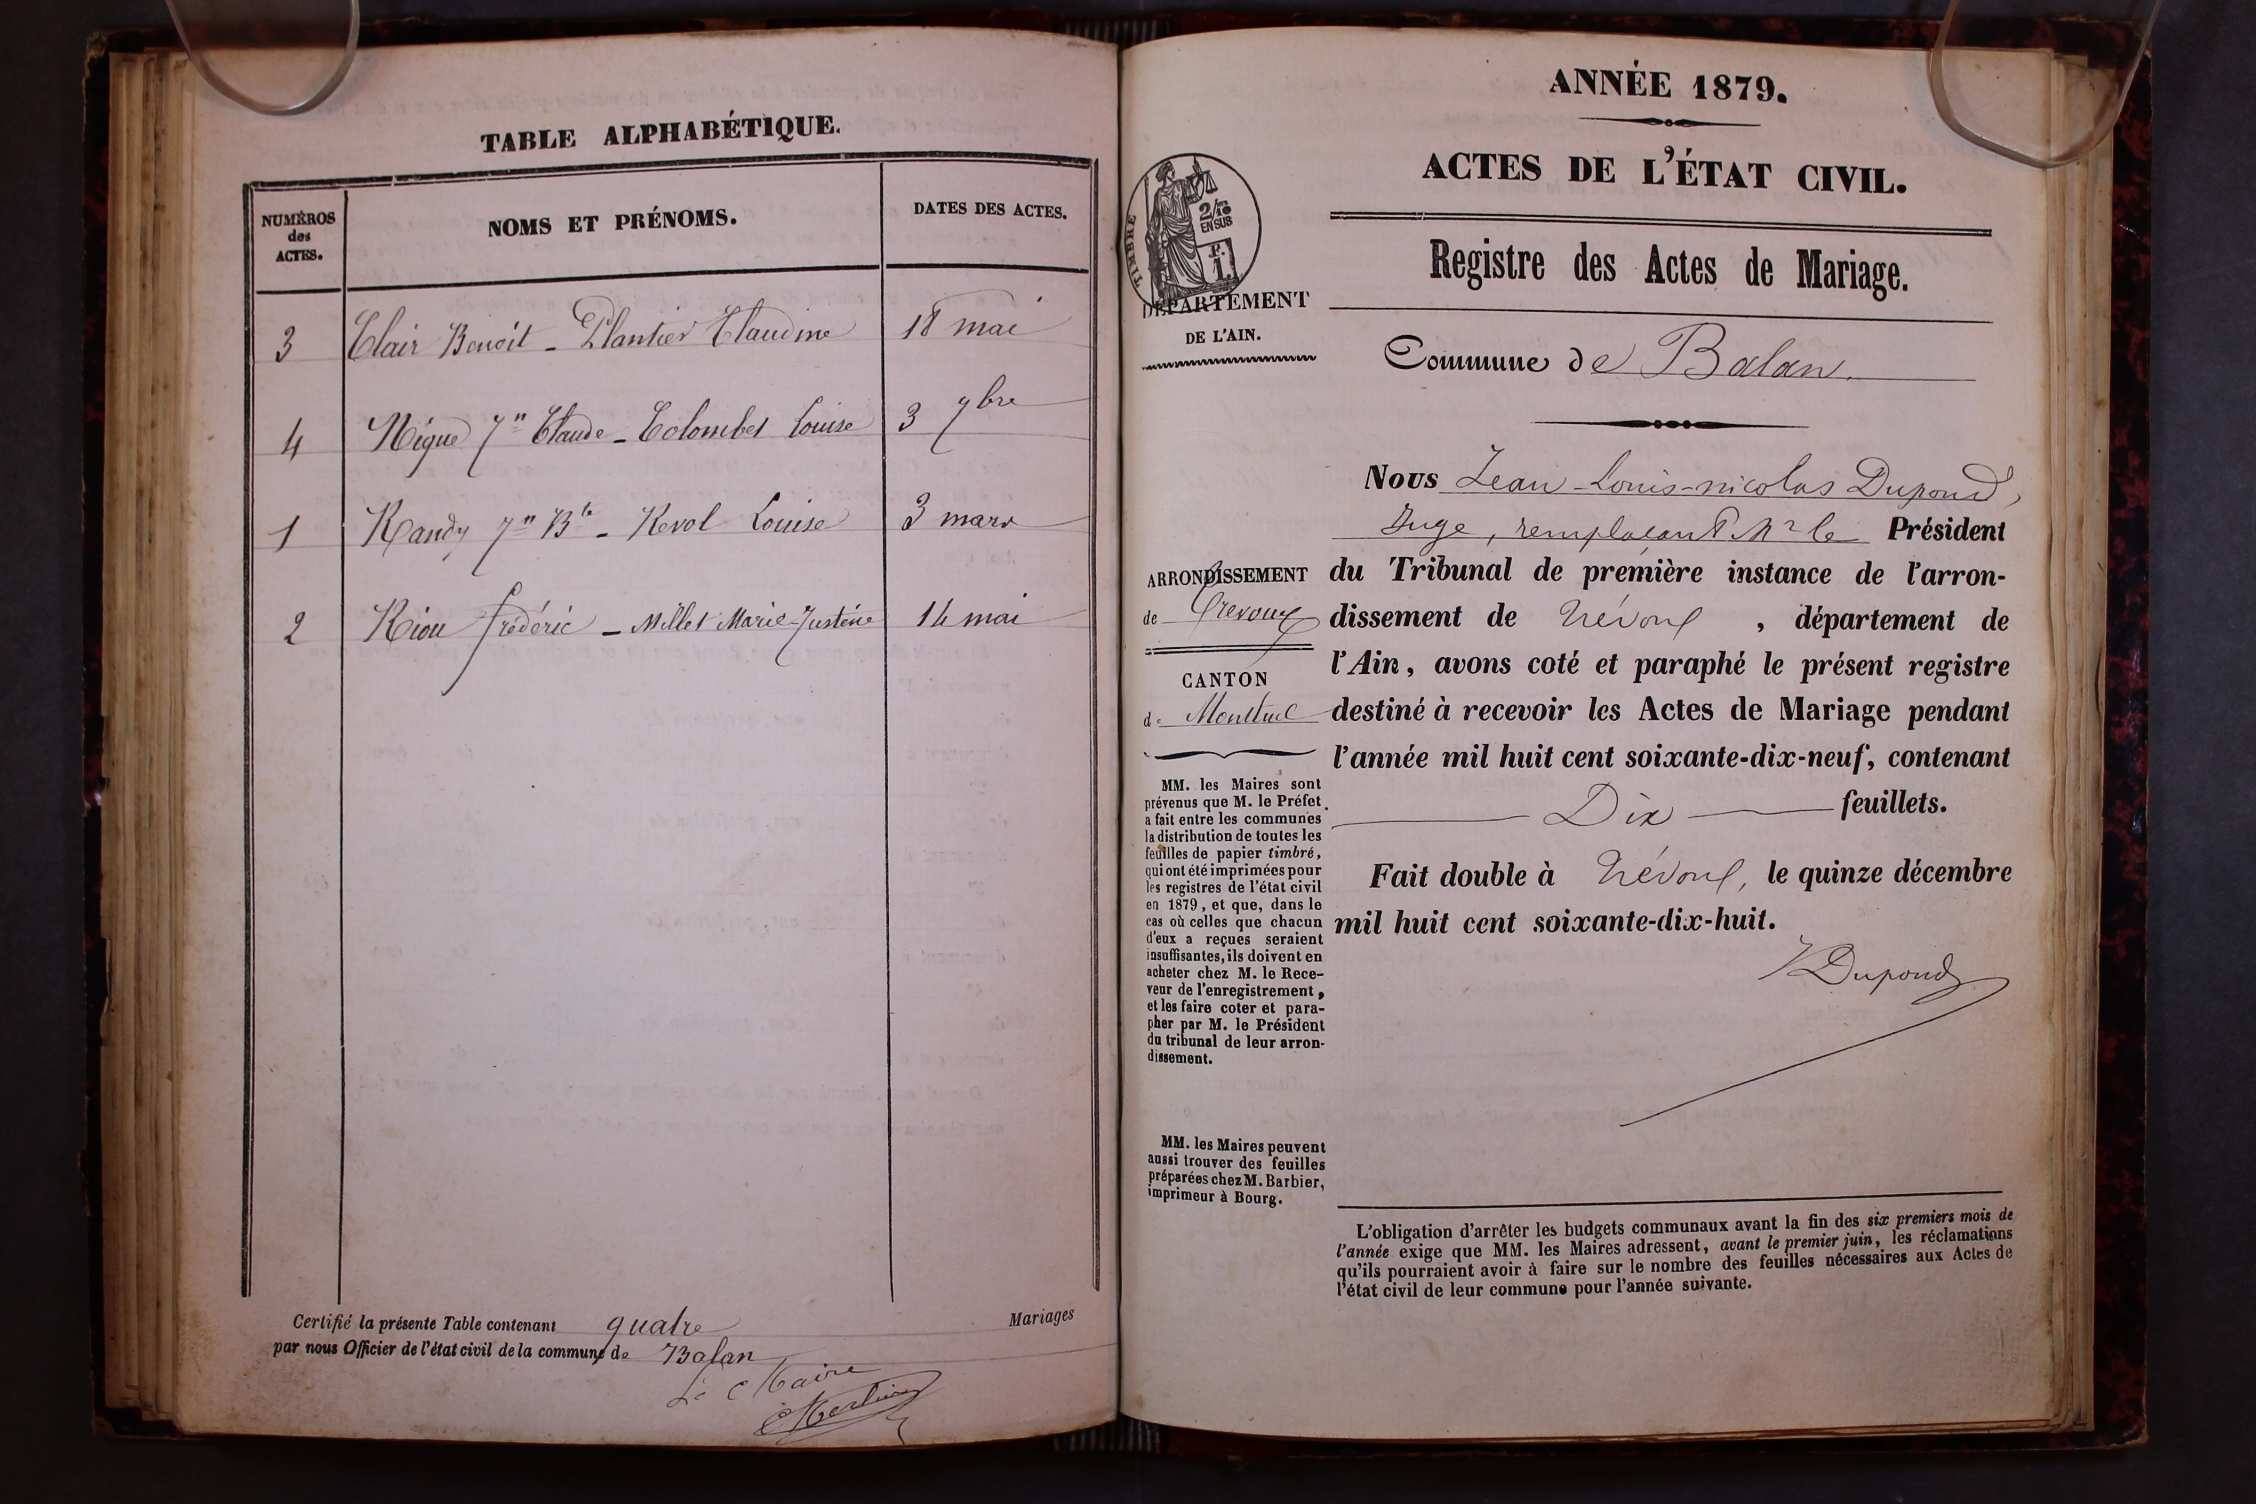 TABLE ALPHABÉTIQUE.
NUMÉROS
des
ACTES.
NOMS ET PRÉNOMS.
DATES DES ACTES.
3 Clair Benoit - Plantier Claudine 18 mai
4 Nique Jn Claude - Colombet Louise 3 9bre
1 Randy Jn Bte - Revol Louise 3 mars
2 Riou frédéric - Millet Marie-Justine 14 mai
Certifié la présente Table contenant quatre Mariages
par nous Officier de l'état civil de la commune de Balan
Le Maire
ANNÉE 1879.
ACTES DE L'ÉTAT CIVIL.
Registre des Actes de Mariage.
TIMBRE
2/10
EN SUS
F.
1.
DÉPARTEMENT
DE L'AIN.
Commune de Balan
ARRONDISSEMENT
de Trévoux
CANTON
de Montluel
MM. les Maires sont
prévenus que M. le Préfet
a fait entre les communes
la distribution de toutes les
feuilles de papier timbré,
qui ont été imprimées pour
les registres de l'état civil
en 1879, et que, dans le
cas où celles que chacun
d'eux a reçues seraient
insuffisantes, ils doivent en
acheter chez M. le Rece-
veur de l'enregistrement,
et les faire coter et para-
pher par M. le Président
du tribunal de leur arron-
dissement.
MM. les Maires peuvent
aussi trouver des feuilles
préparées chez M. Barbier,
imprimeur à Bourg.
Nous Jean-Louis-nicolas Dupond,
Juge, remplaçant Mr le Président
du Tribunal de première instance de l'arron-
dissement de Trévoux, département de
l'Ain, avons coté et paraphé le présent registre
destiné à recevoir les Actes de Mariage pendant
l'année mil huit cent soixante-dix-neuf, contenant
Dix feuillets.
Fait double à Trévoux, le quinze décembre
mil huit cent soixante-dix-huit.
Dupond
L'obligation d'arrêter les budgets communaux avant la fin des six premiers mois de
l'année exige que MM. les Maires adressent, avant le premier juin, les réclamations
qu'ils pourraient avoir à faire sur le nombre des feuilles nécessaires aux Actes de
l'état civil de leur commune pour l'année suivante.